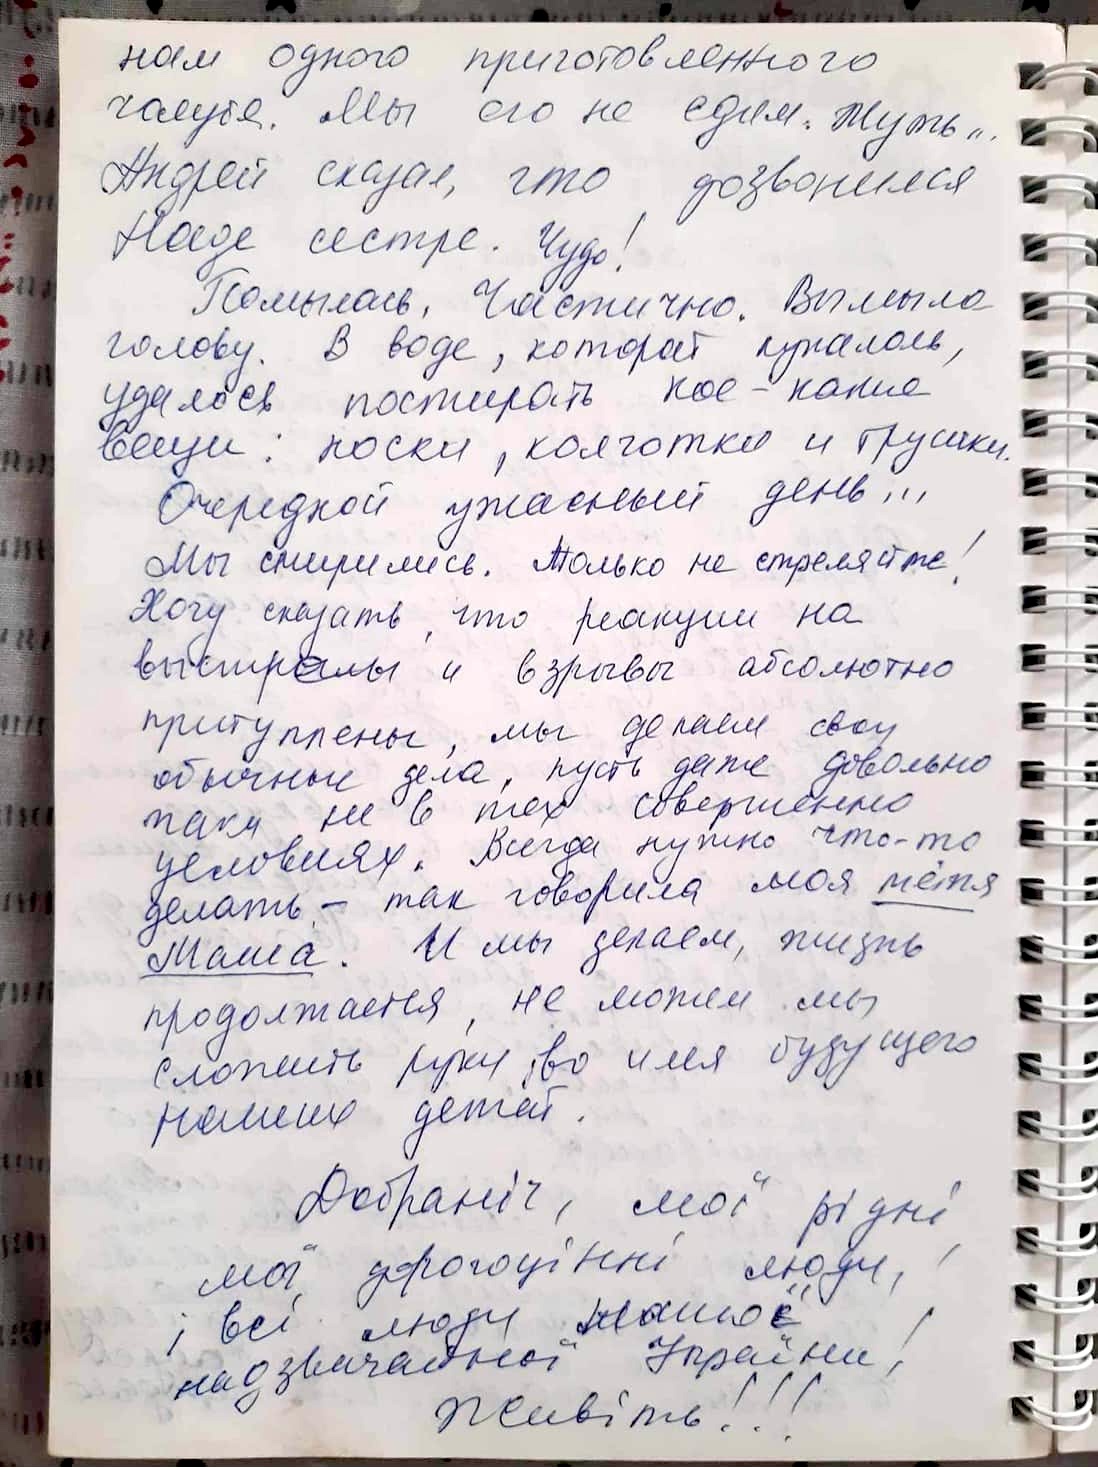 нам одного приготовленного
голубя. Мы его не едим. Жуть...
Андрей сказал, что дозвонился
Наде сестре. Чудо!
Помылась. Частично. Вымыла
голову. В воде, которой купалась,
удалось постирать кое-какие
вещи: носки, колготки и трусики.
Очередной ужасный день...
Мы смирились. Только не стреляйте!
Хочу сказать, что реакции на
выстрелы и взрывы абсолютно
притуплены, мы делаем свои
обычные дела, пусть даже довольно
таки не в тех совершенно
условиях. Всегда нужно что-то
делать - так говорила моя тётя
Маша. И мы делаем, жизнь
продолжается, не можем мы
сложить руки, во имя будущего
наших детей.
Добраніч, мої рідні,
мої дорогоцінні люди,
і всі люди нашої
надзвичайної України!
Живіть!!!